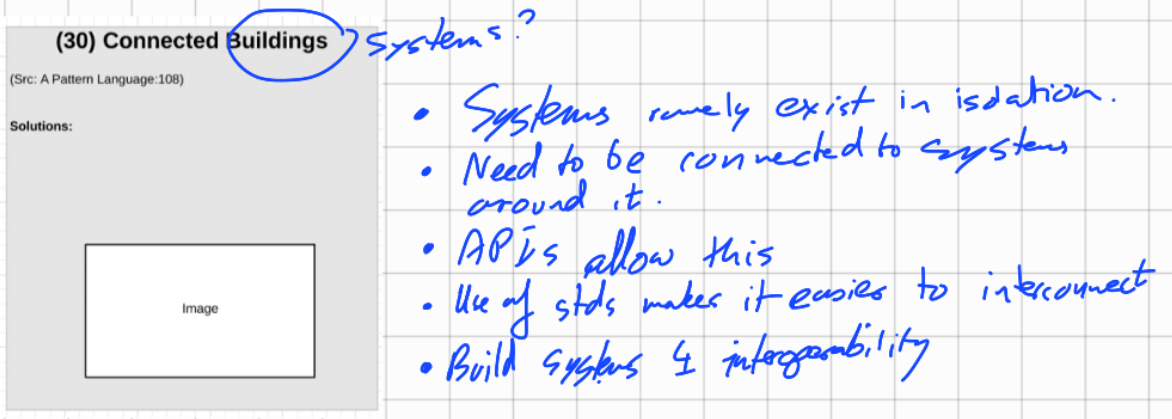 (30) Connected Buildings
Systems?
(Src: A Pattern Language:108)
Solutions:
Image
• Systems rarely exist in isolation.
• Need to be connected to systems
around it.
• APIs allow this
• Use of stds makes it easier to interconnect
• Build systems 4 interoperability